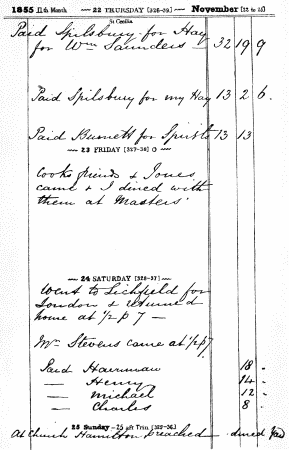 1855 11th Month — 22 THURSDAY [326-39] — November [22 to 25]
St Cecilia
Paid Spilsbury for Hay
for Wm Saunders — 32 19 9
Paid Spilsbury for my Hay 13 2 6.
Paid Burnett for Spirits 13 13
— 23 FRIDAY [327-38] O —
Cooks friends & Jones
came & I dined with
them at Masters'
— 24 SATURDAY [328-37] —
Went to Lichfield for
London & returned
home at ½ p 7 —
Mr Stevens came at ½ p 7
Paid Harriman 18 -
— Henry 14 -
— Michael 12 -
— Charles 8 -
25 Sunday - 25 aft Trin. [329-36]
At Church Hamilton preached — dined